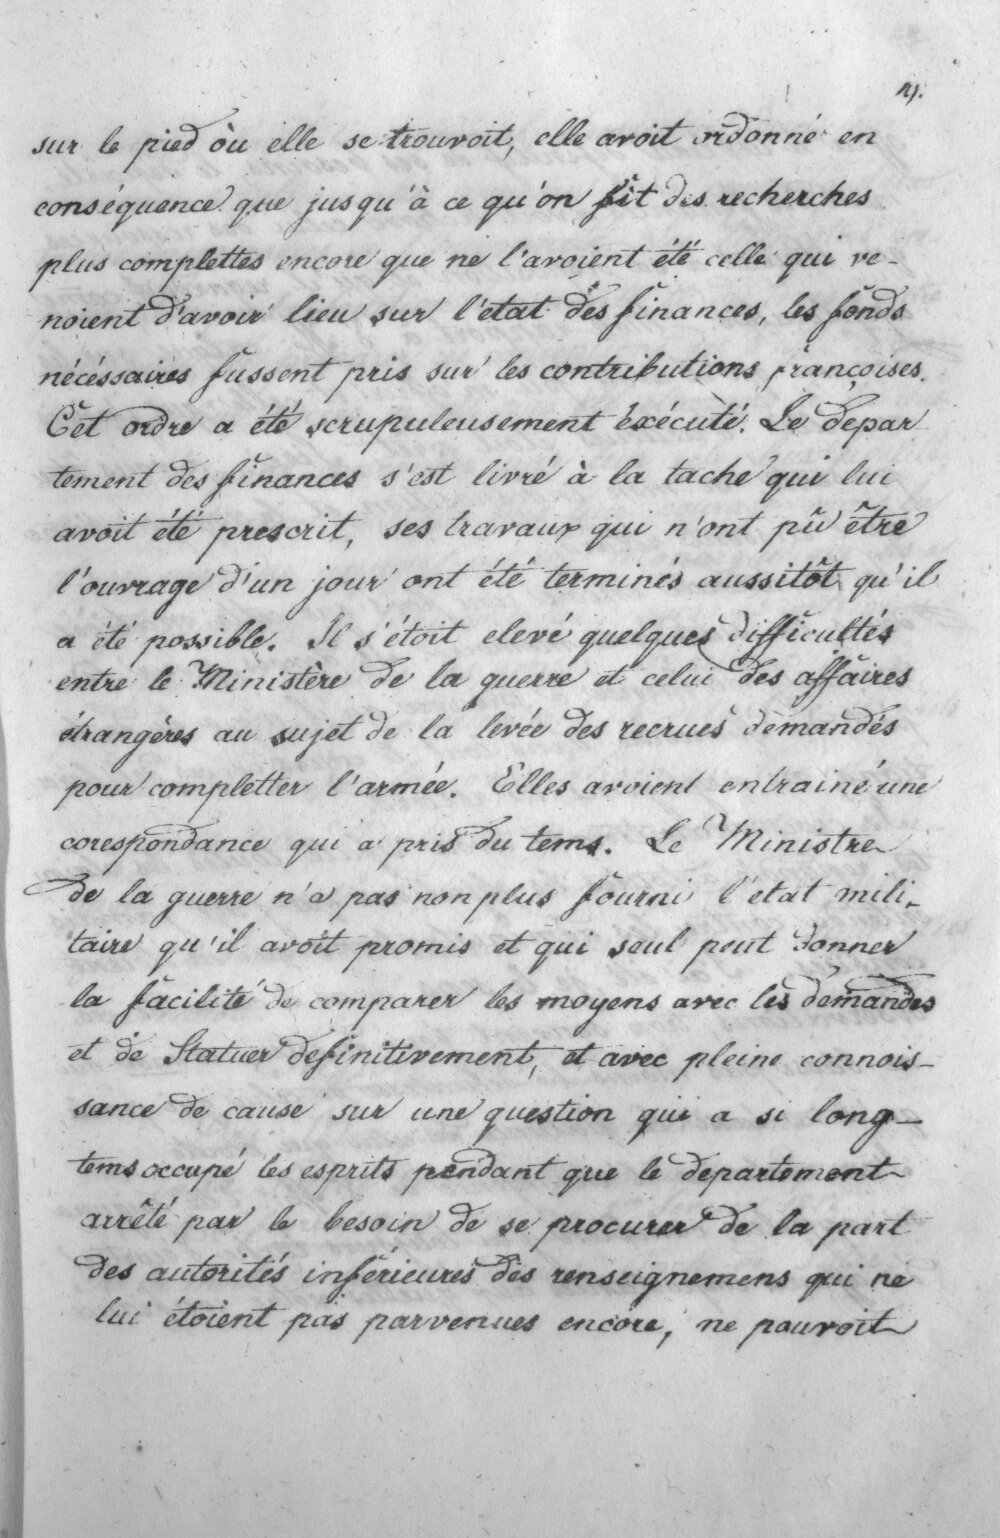 sur le pied òu elle se trouvoit, elle avoit ordonné en
conséquence que jusqu'à ce qu'on fit des recherches
plus complettes encore que ne l'avoient été celle qui ve-
noient d'avoir lieu sur l'état des finances, les fonds
nécéssaires fussent pris sur les contributions françoises.
Cet ordre a été scrupuleusement éxécuté. Le Depar-
tement des finances s'est livré à la tache qui lui
avoit été prescrit, ses travaux qui n'ont pû être
l'ouvrage d'un jour ont été terminés aussitôt qu'il
a été possible. Il s'étoit elevé quelques difficultés
entre le Ministère de la guerre et celui des affaires
étrangères au sujet de la levée des recrues demandés
pour completter l'armée. Elles avoient entrainé une
corespondance qui a pris du tems. Le Ministre
de la guerre n'a pas non plus fourni l'etat mili-
taire qu'il avoit promis et qui seul peut donner
la facilité de comparer les moyens avec les demandes
et de Statuer definitivement, et avec pleine connois-
sance de cause sur une question qui a si long-
tems occupé les esprits pendant que le departement
arrêté par le besoin de se procurer de la part
des autorités inférieures des renseignemens qui ne
lui étoient pas parvenues encore, ne pouvoit